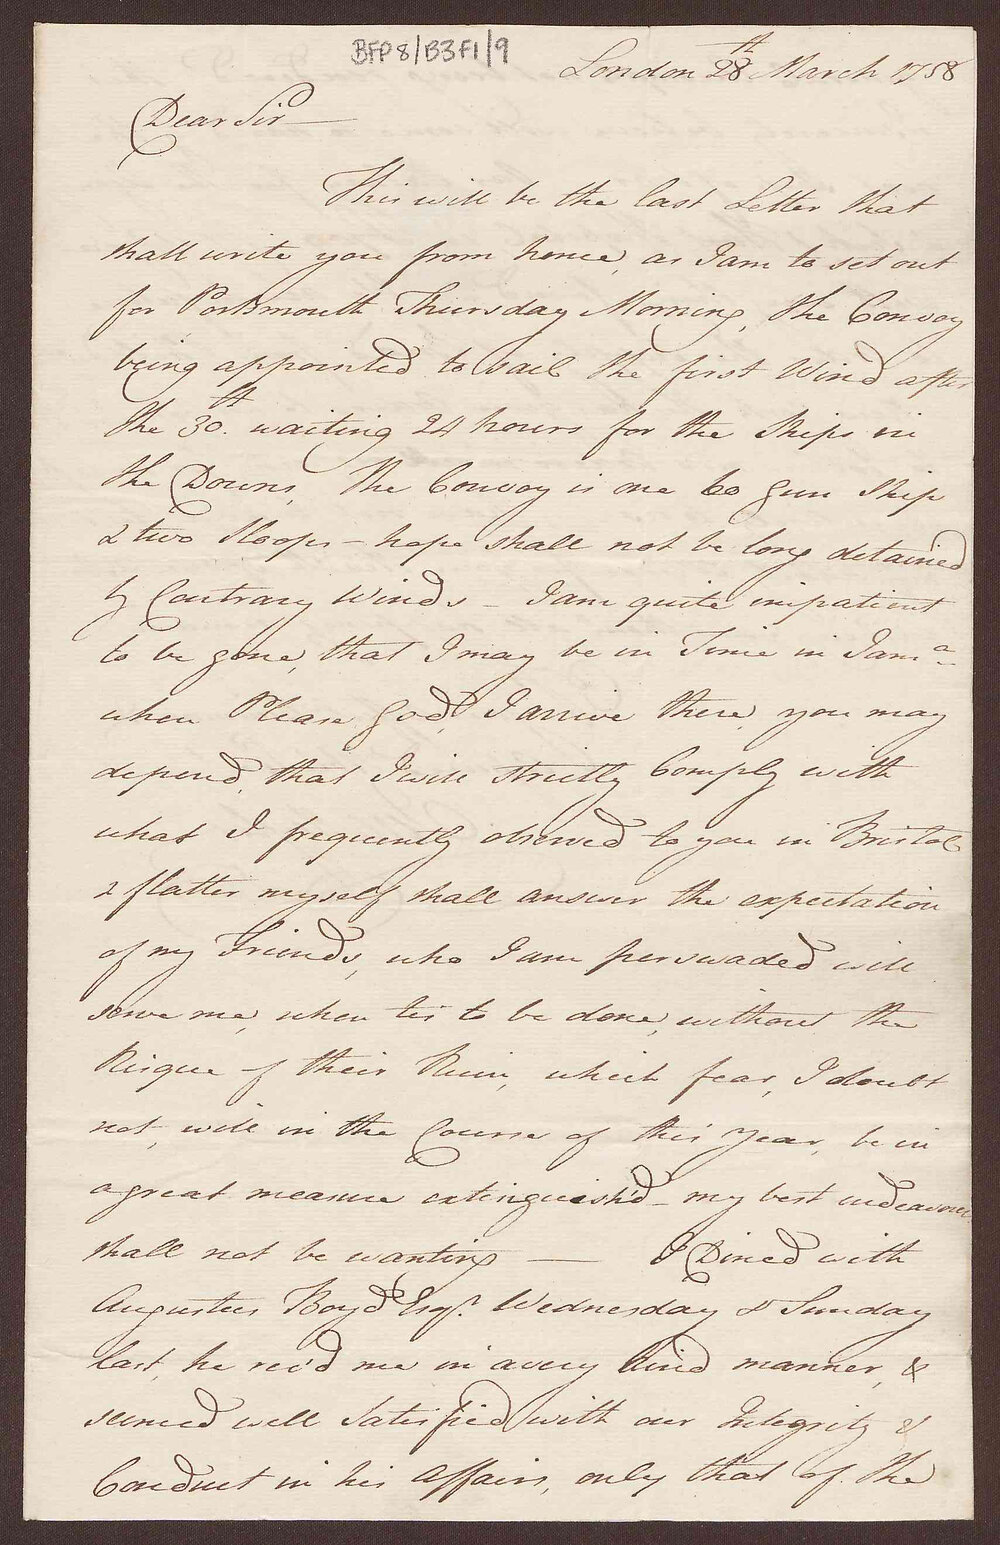 BFP8/B3F1/9
London 28th March 1758
Dear Sir
This will be the last Letter that
shall write you from hence, as I am to set out
for Portsmouth Thursday Morning, the Convoy
being appointed to sail the first Wind after
the 30th. waiting 24 hours for the Ships in
the Downs, the Convoy is one 60 Gun Ship
& two Sloops – hope shall not be long detained
by Contrary Winds – I am quite impatient
to be gone, that I may be in Time in Jama
when Please God, I arrive there, you may
depend, that I will strictly Comply with
what I frequently observed to you in Bristol
& flatter myself shall answer the expectation
of my Friends, who I am perswaded will
serve me, when tis to be done, without the
Risque of their Ruin, which fear, I doubt
not, will in the Course of this Year, be in
a great measure extinguish'd – my best endeavours
shall not be wanting — I Dined with
Augustus Boyd Esqr. Wednesday & Sunday
last, he rec'd me in a very kind manner, &
seemed well Satisfied with our Integrity &
Conduct in his Affairs, only that of the